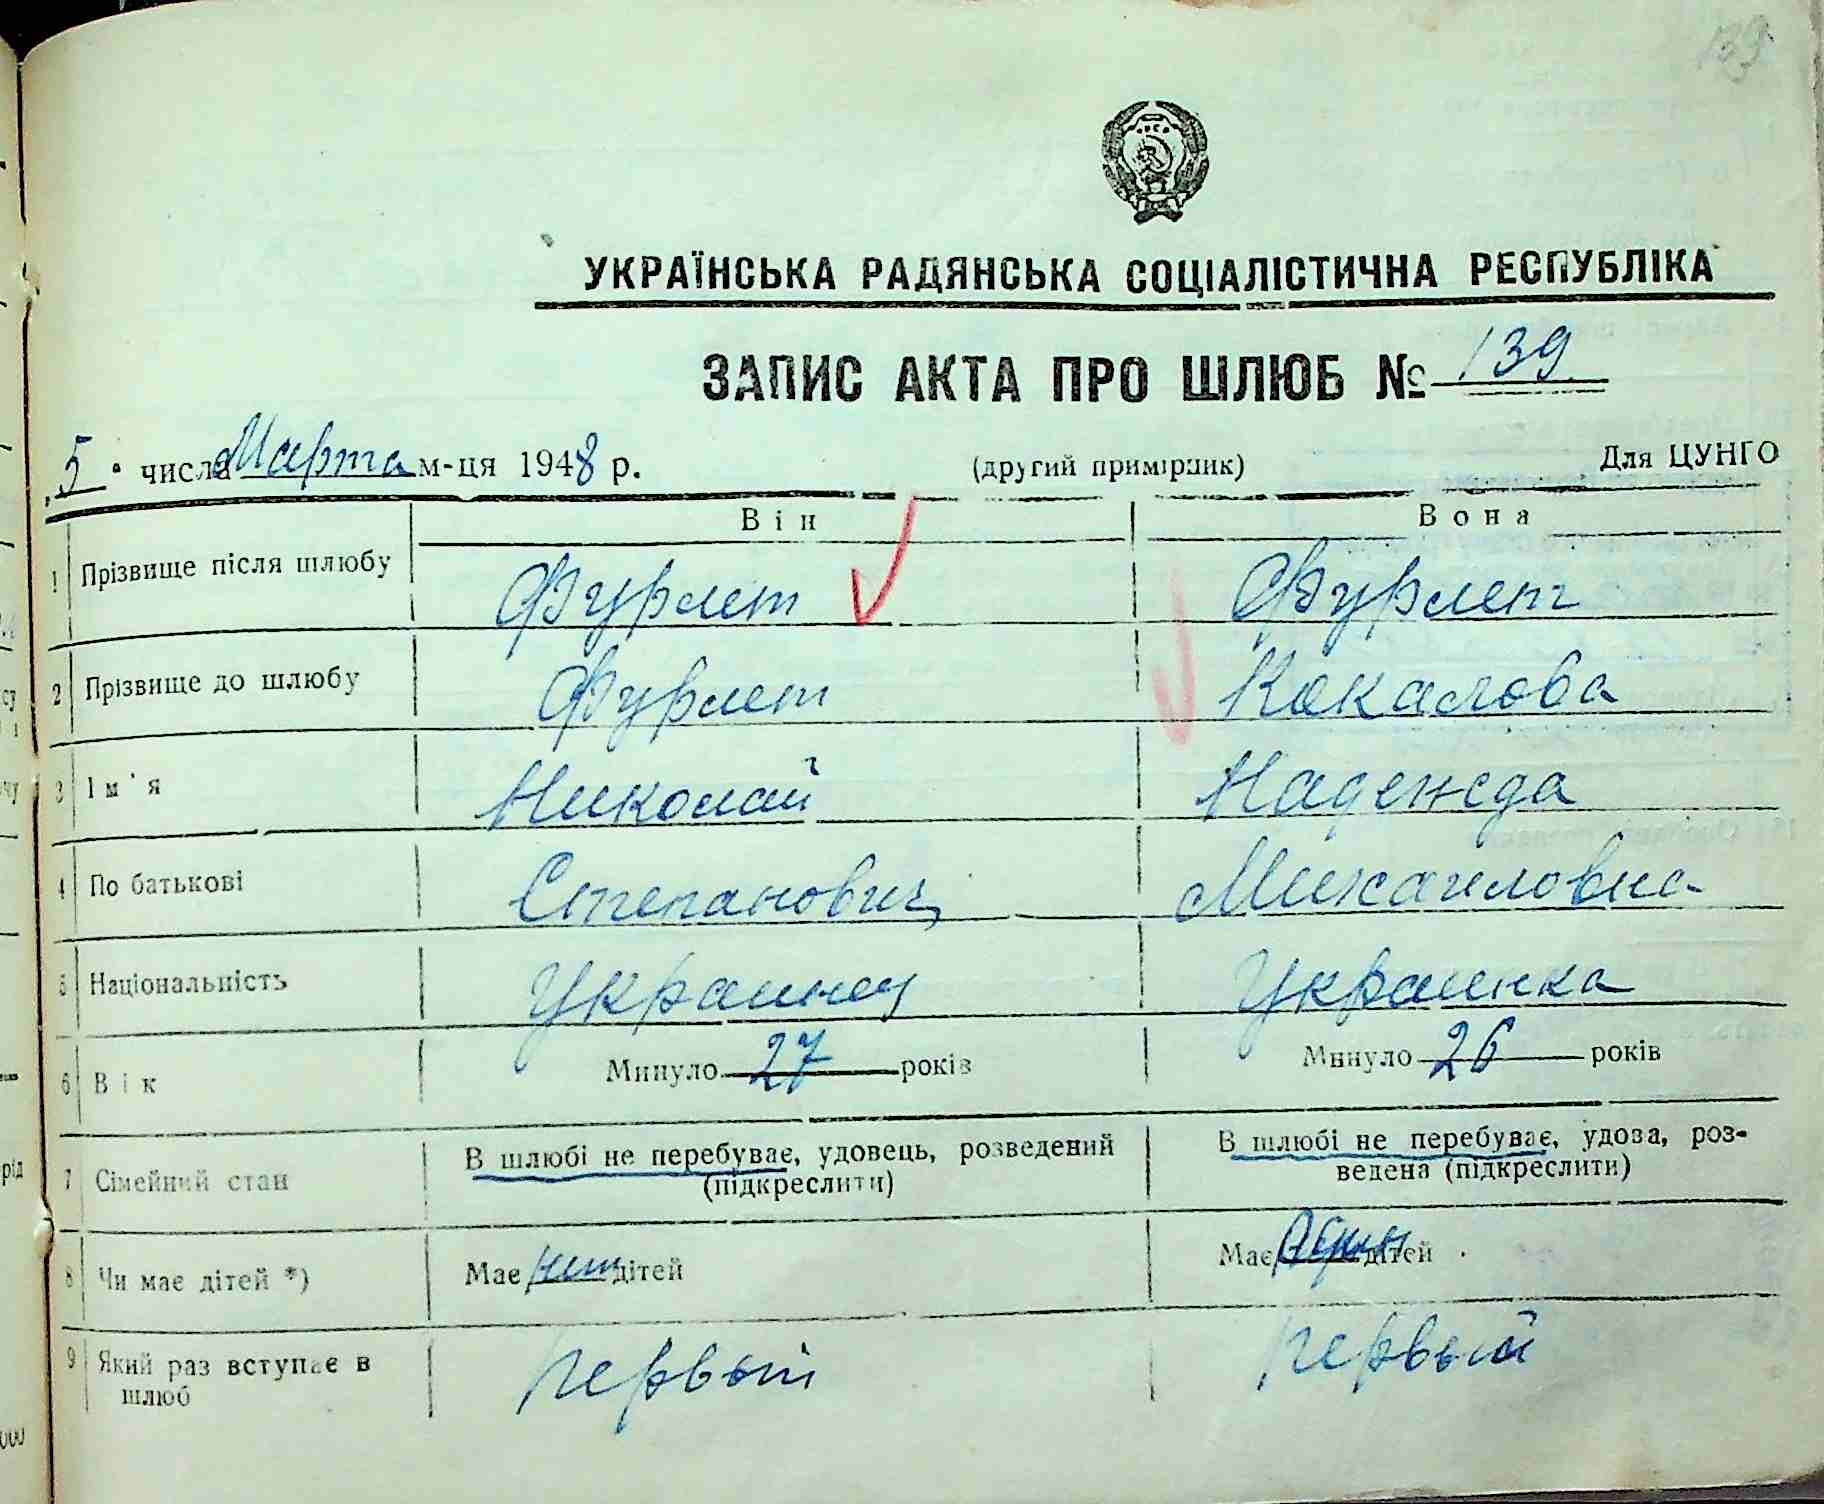 139
УКРАЇНСЬКА РАДЯНСЬКА СОЦІАЛІСТИЧНА РЕСПУБЛІКА
ЗАПИС АКТА ПРО ШЛЮБ № 139
5 числа Марта м-ця 1948 р. (другий примірник) Для ЦУНГО
Він Вона
1 Прізвище після шлюбу Фурлет Фурлет
2 Прізвище до шлюбу Фурлет Кокалова
3 Ім'я Николай Надежда
4 По батькові Степанович Михаиловна
5 Національність Украинец Украинка
6 Вік Минуло 27 років Минуло 26 років
7 Сімейний стан В шлюбі не перебуває, удовець, розведений (підкреслити) В шлюбі не перебуває, удова, роз-
ведена (підкреслити)
8 Чи має дітей *) Має нет дітей Має Один дітей
9 Який раз вступає в шлюб первый первый